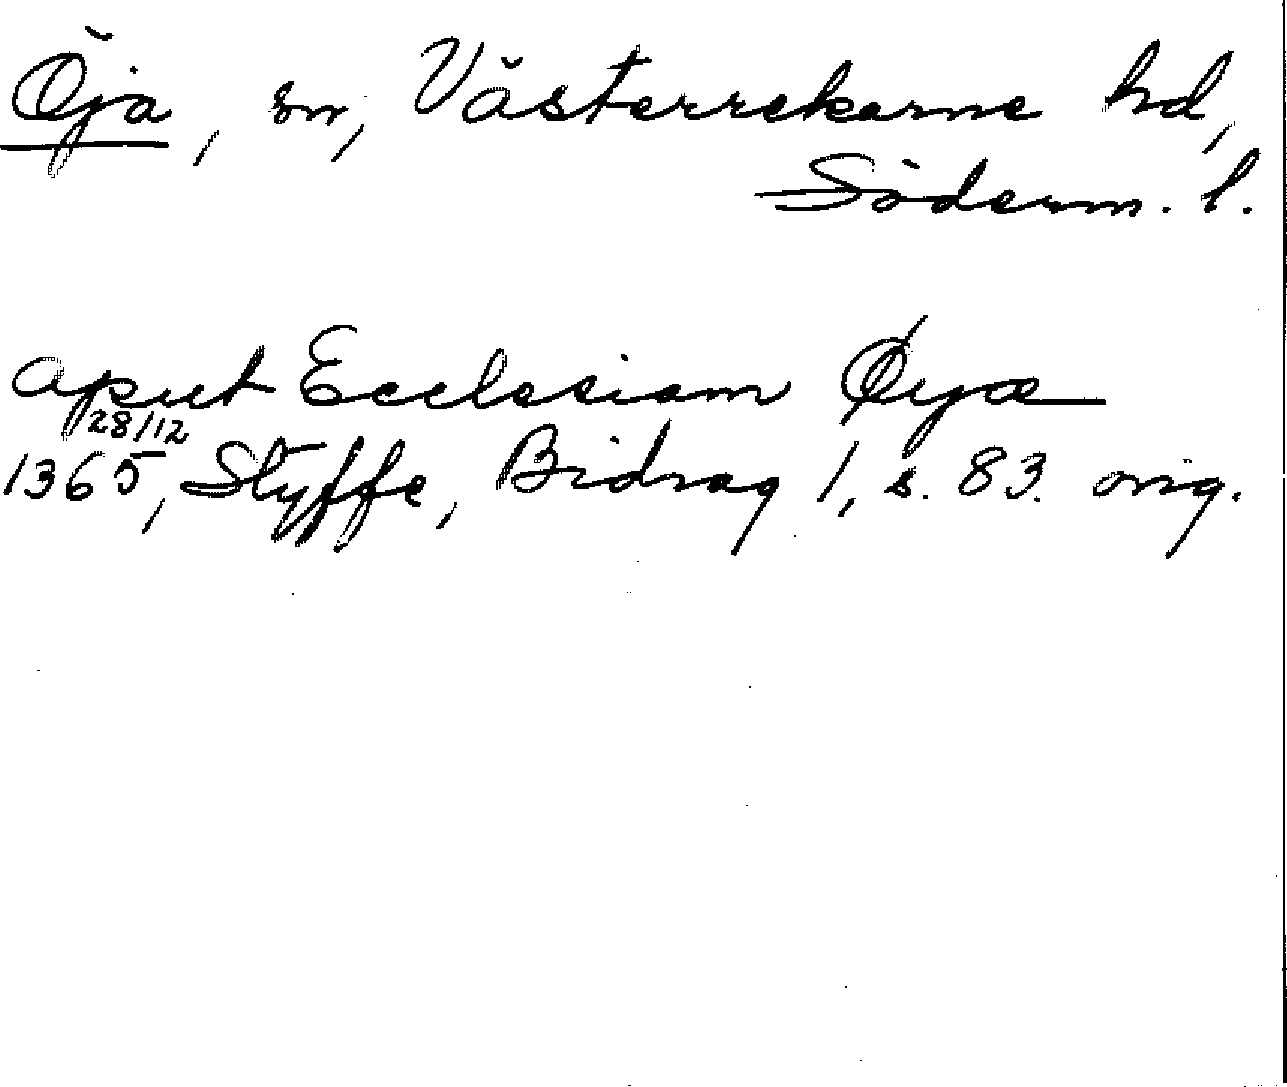 Öja, sn, Västerrekarne hd,
Söderm. l.
aput Ecclesiam Øya
28/12
1365, Styffe, Bidrag 1, s. 83. orig.